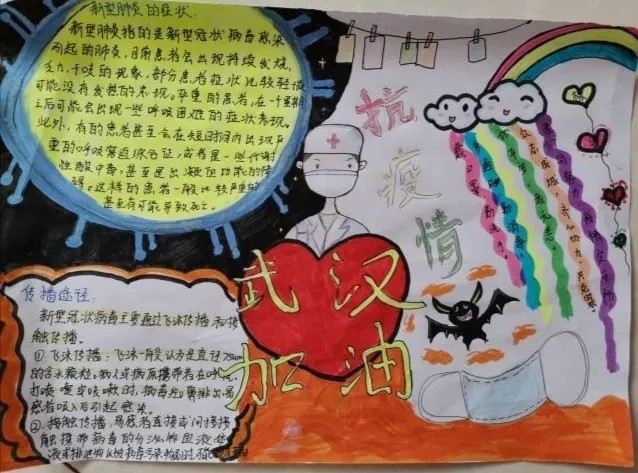 新型肺炎的症状:
新型肺炎指的是新型冠状病毒感染
引起的肺炎,目前患者会出现持续发烧,
乏力,干咳的现象,部分患者症状比较轻微
可能没有发烧的表现。严重的患者,在一个星期
之后可能会出现一些呼吸困难的症状表现。
此外,有的患者甚至会在短时间内出现严
重的呼吸窘迫综合征,或者是一些代谢
性酸中毒,甚至是出凝血功能的障
碍。这样的患者一般比较严重的
甚至有可能导致死亡。
抗
疫
情
武汉
加油
传播途径:
新型冠状病毒主要通过飞沫传播和接
触传播。
①飞沫传播:飞沫一般认为是直径
的含水颗粒,病人或病原携带者在呼气,
打喷嚏或咳嗽时,病毒
感者吸入后引起感染。
②接触传播,易感者直接或间接接
触携带病毒的分泌物血液体
液或排泄物
戴口罩,勤洗手。
众志成城,齐心协力,共克时艰